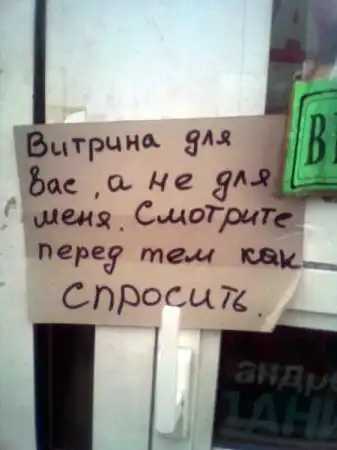 Витрина для
вас, а не для
меня. Смотрите
перед тем как
СПРОСИТЬ.